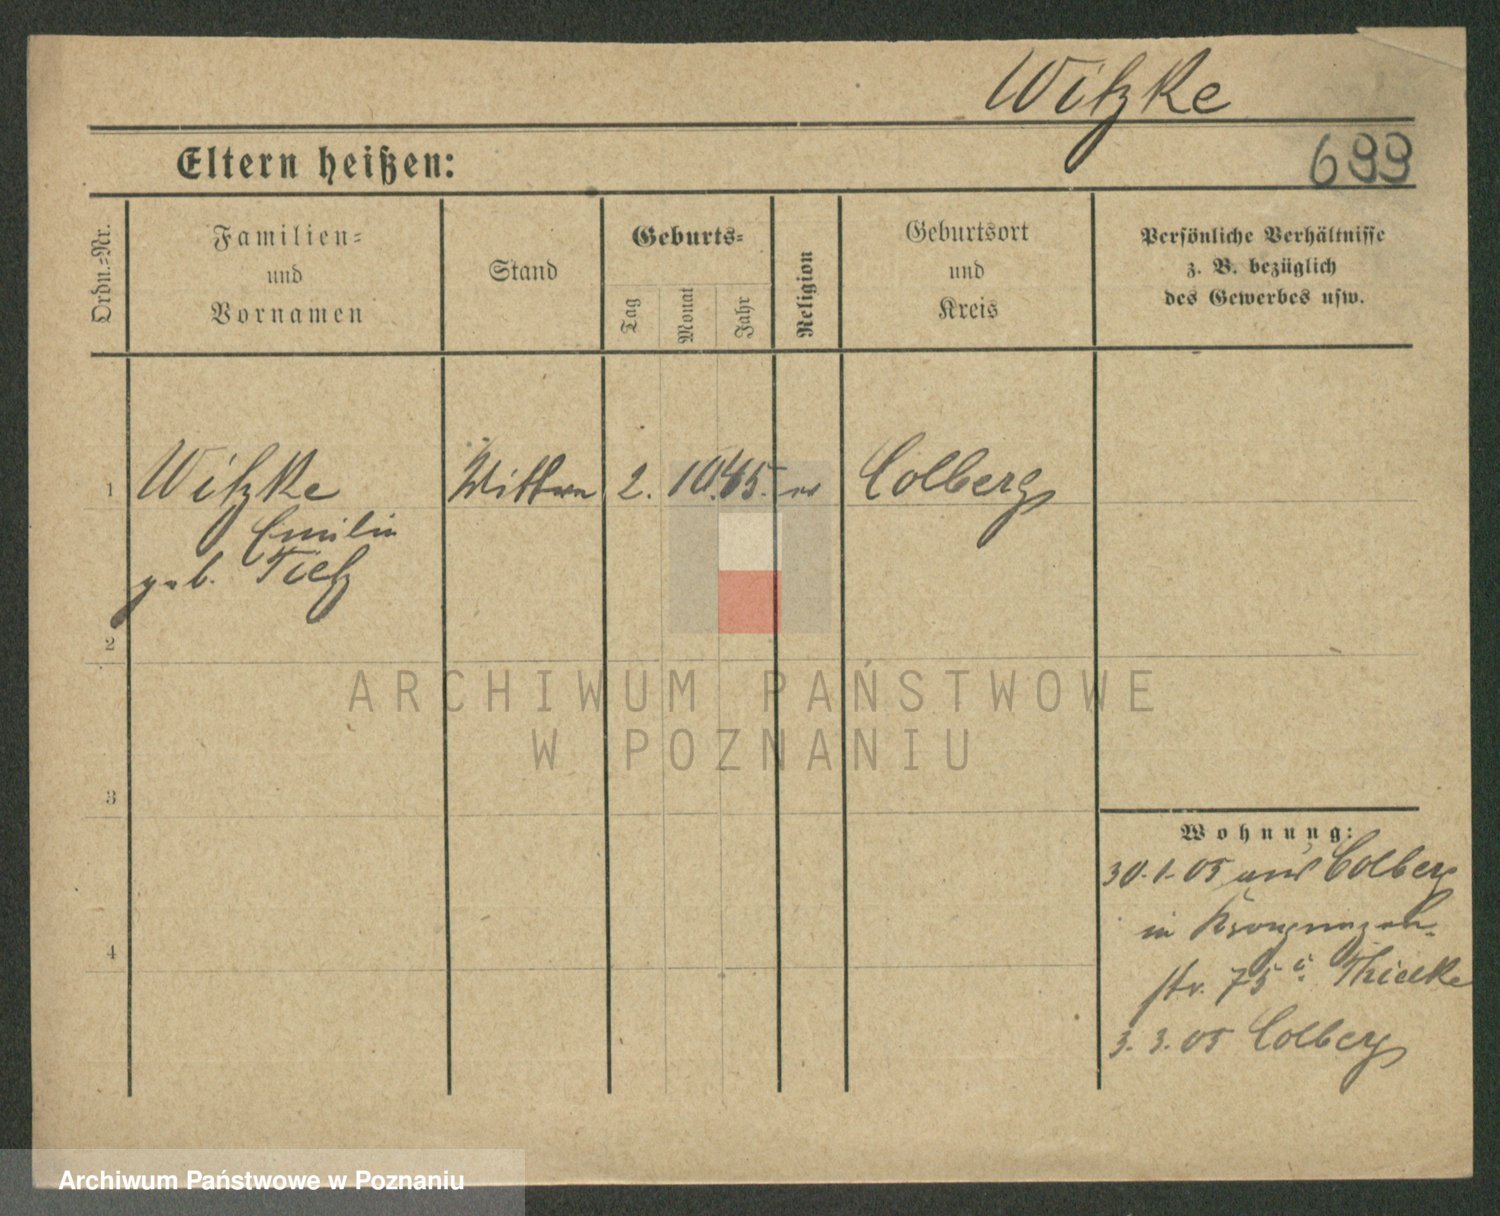 Witzke
699
Eltern heißen:
Ordn.-Nr.
Familien-
und
Vornamen
Stand
Geburts-
Tag
Monat
Jahr
Religion
Geburtsort
und
Kreis
Persönliche Verhältnisse
z. B. bezüglich
des Gewerbes usw.
1
Witzke
Emilie
geb. Tietz
Wittwe
2. 10. 45.
ev
Colberg
2
3
4
Wohnung:
30.1.05 aus Colberg
in Kronprinzen-
str. 75 Thielke
3. 3. 05 Colberg
ARCHIWUM PAŃSTWOWE
W POZNANIU
Archiwum Państwowe w Poznaniu